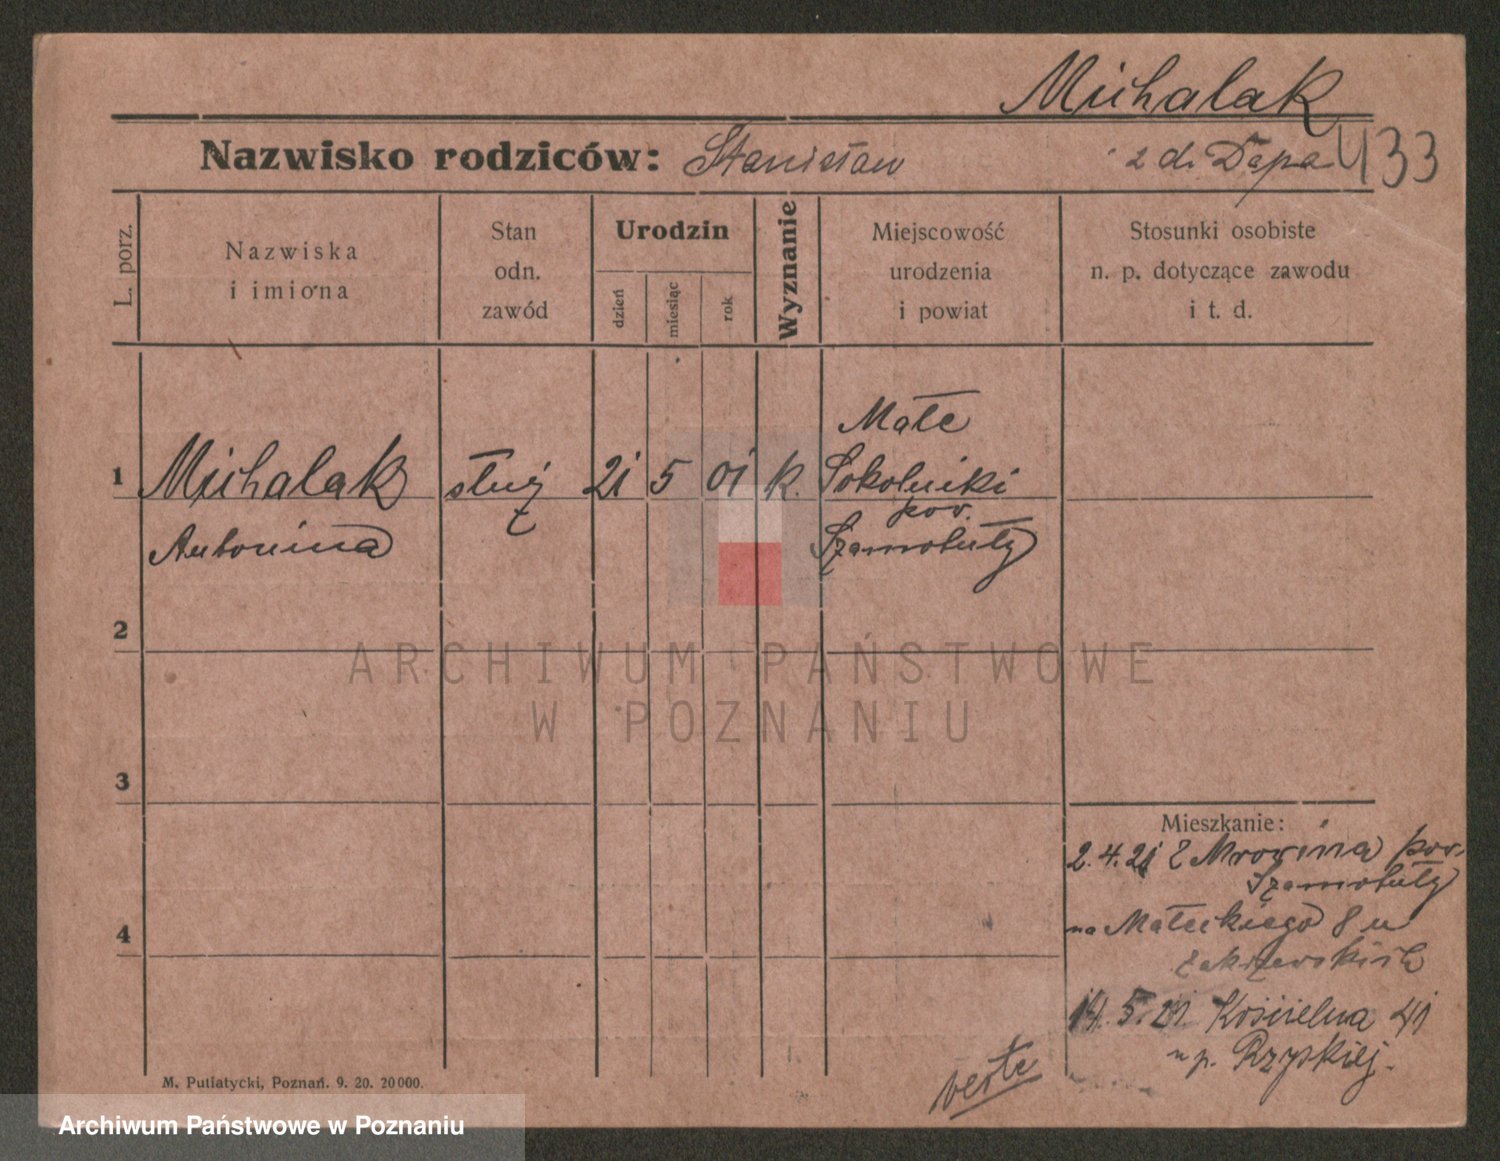 Michalak
Nazwisko rodziców: Stanisław z d. Dapa 433
L. porz.
Nazwiska
i imiona
Stan
odn.
zawód
Urodzin
dzień
miesiąc
rok
Wyznanie
Miejscowość
urodzenia
i powiat
Stosunki osobiste
n. p. dotyczące zawodu
i t. d.
Małe
1 Michalak służ 21 5 01 k. Sokolniki
pow.
Antonina Szamotuły
2
3
4
Mieszkanie:
2.4.21 z Mrowina pow.
Szamotuły
na Małeckiego 8 u
14.5.21. Kościelna 41
u p. Rzyskiej.
M. Putiatycki, Poznań. 9. 20. 20000.
ARCHIWUM PAŃSTWOWE
W POZNANIU
Archiwum Państwowe w Poznaniu